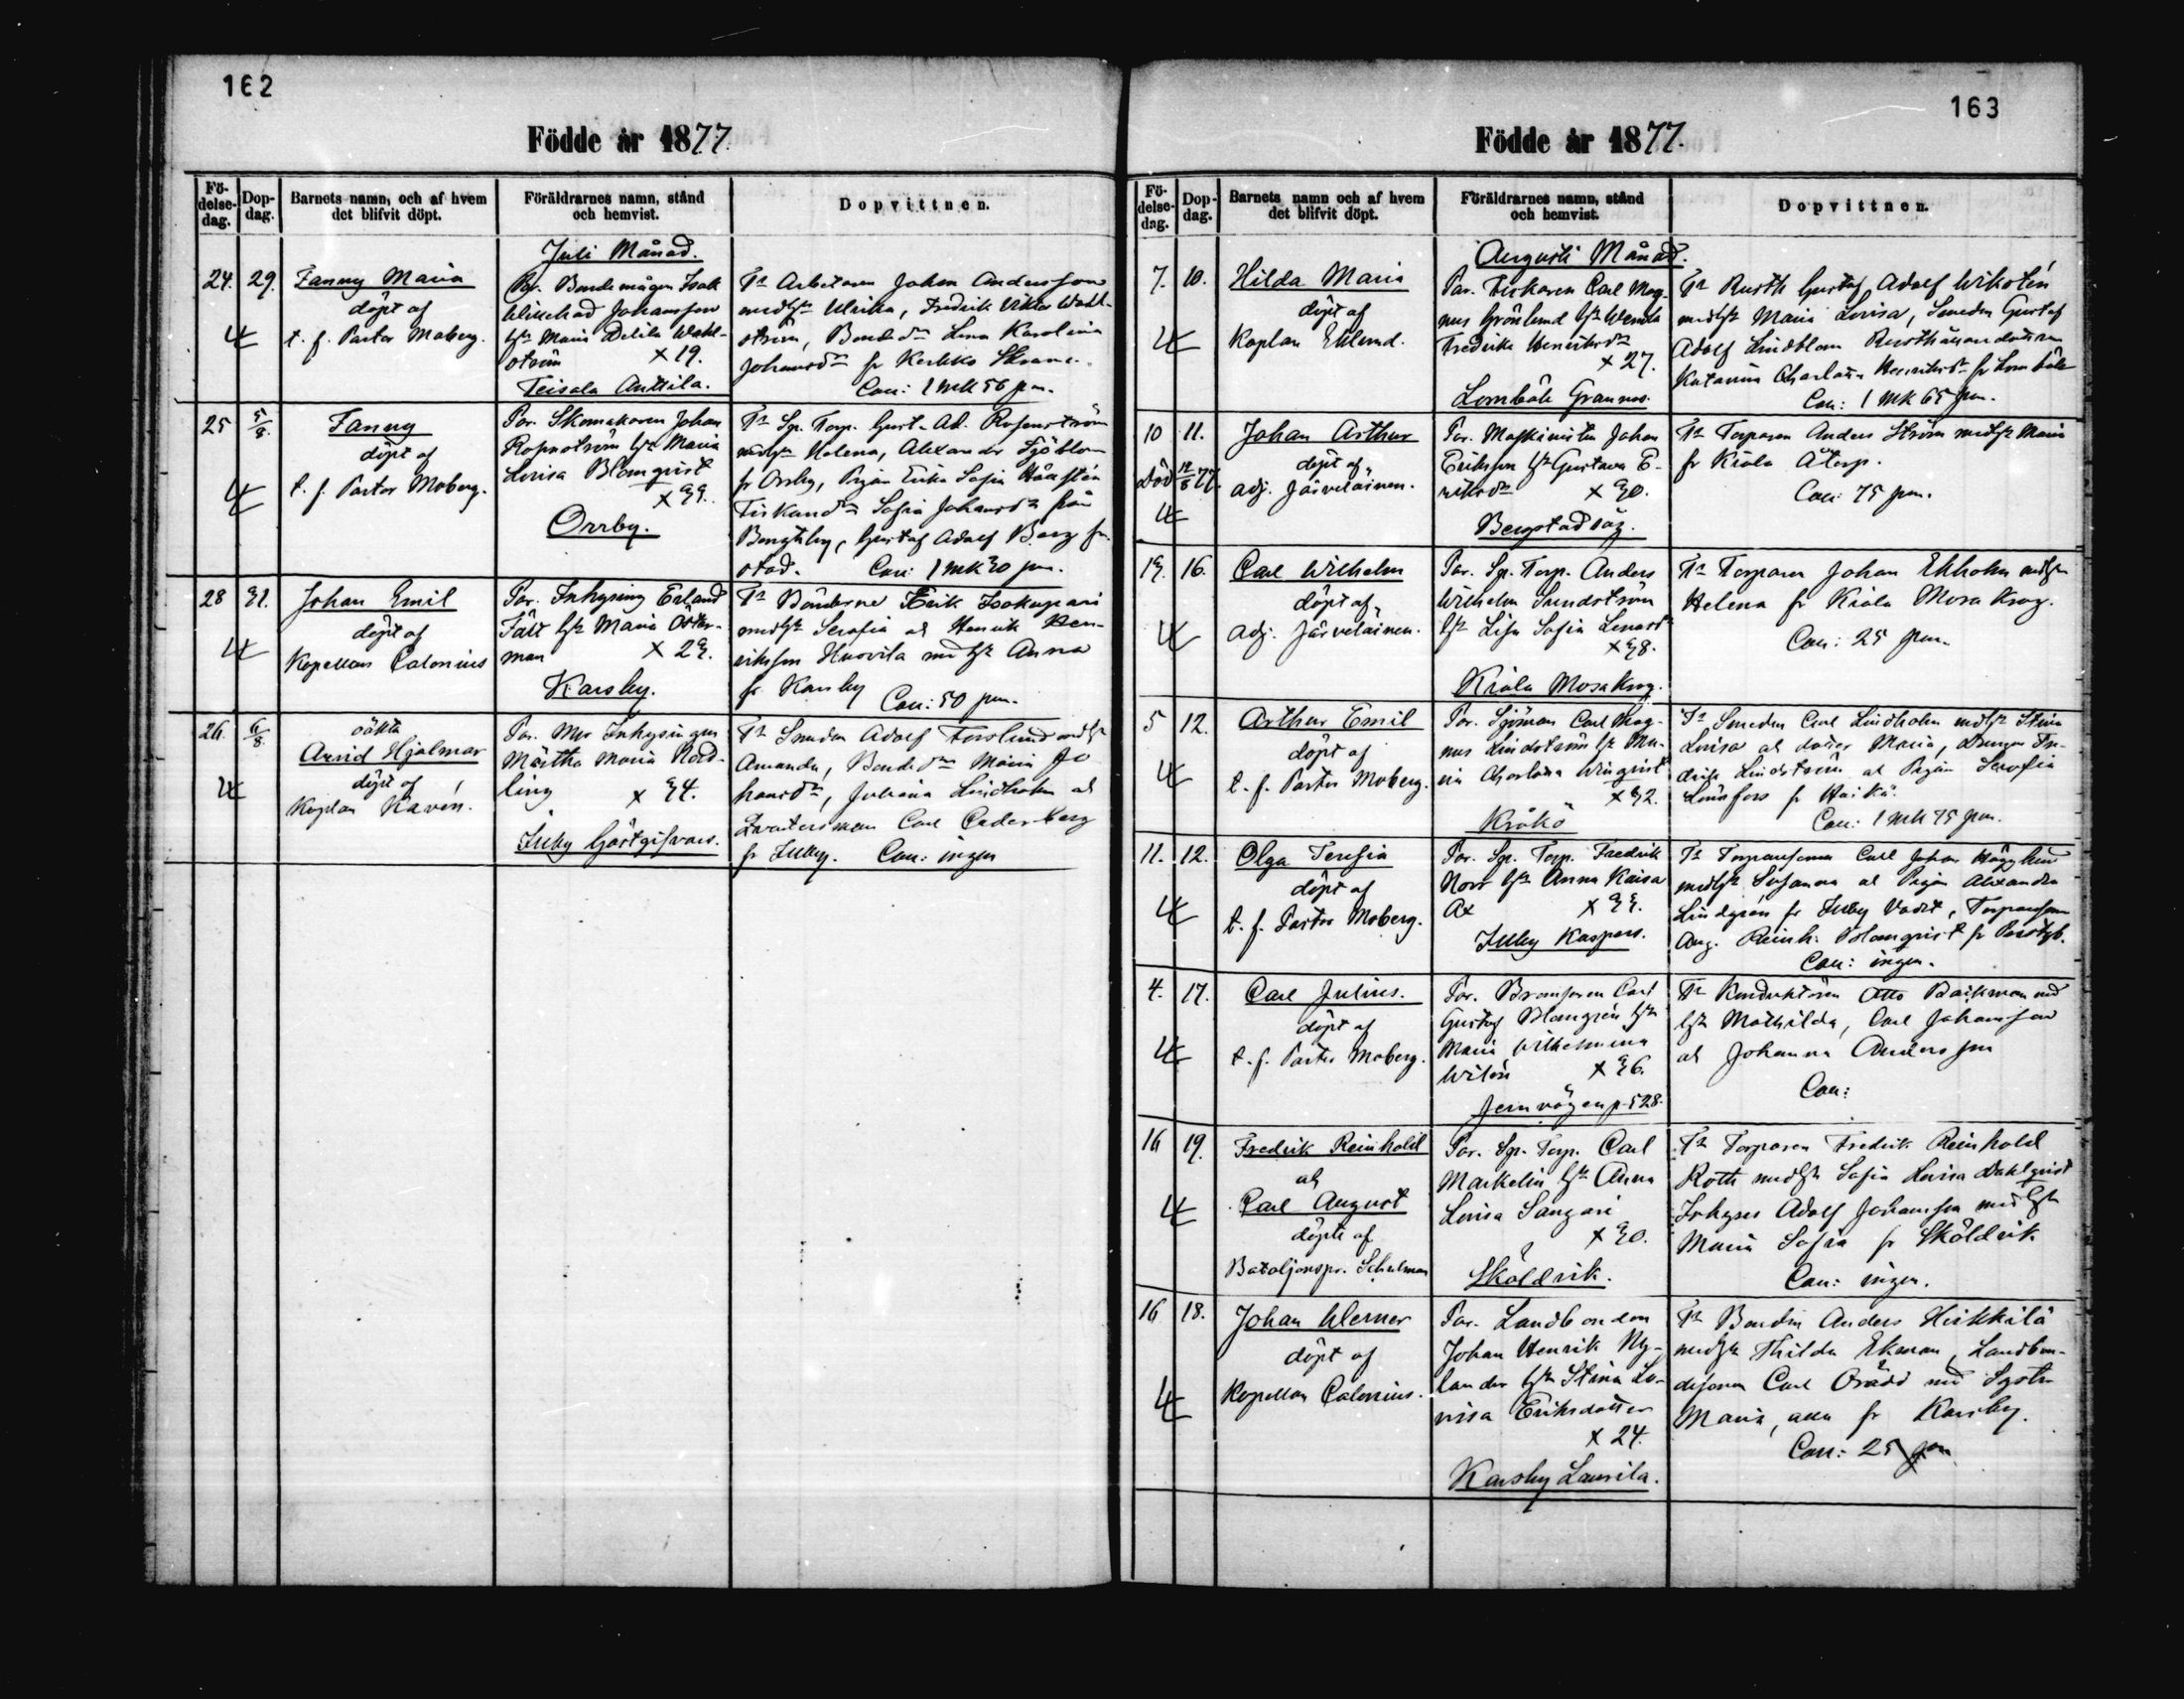 162
Födde år 1877.
Fö-
delse-
dag.
Dop-
dag.
Barnets namn, och af hvem
det blifvit döpt.
Föräldrarnes namn, stånd
och hemvist.
Dopvittnen.
Juli Månad.
24. 29. Fanny Maria
döpt af
t. f. Pastor Moberg.
Par. Bondemågen Isak
Wilhad Johansson
hst Maria Delila Wahl-
ström × 19.
Teisala Anttila.
Tt Arbetaren Johan Andersson
medhst Ulrika, Fredrik Viktor Wahl-
ström, Bondedr Lena Karolina
Johansdr fr Kerkko
Coll: 1 mk 56 pm.
25 5/8. Fanny
döpt af
t. f. Pastor Moberg.
Par. Skomakaren Johan
Rosenström hst Maria
Lovisa Blomqvist
× 33.
Orrby.
Tt Sp. Torp. Gust. Ad. Rosenström
medhst Helena, Alexander Sjöblom
fr Orrby, Pigan Erika Sofia
Sofia Johansdr från
Bengtsby, Gustaf Adolf Berg fr
stad. Coll: 1 mk 30 pm.
28 31. Johan Emil
döpt af
Kapellan Calonius
Par. Inhysing Erland
Fält hst Maria Öster-
man × 23.
Karsby.
Tt Bönderne Erik Isakupari
medhst Serafia och Henrik Hen-
riksson Huovila med hst Anna
fr Karsby Coll: 50 pm.
26. 6/8. oäkta
Arvid Hjalmar
döpt af
Kaplan Ravén.
Par. Mor Inhysingen
Märtha Maria Nord-
ling × 34.
Illby Gästgifvars.
Tt Smeden Adolf Forslund medhst
Amanda, Bondedr Maria Jo
hansdr, Johanna Lindholm och
Carl Cederberg
fr Illby. Coll: ingen
163
Födde år 1877.
Fö-
delse-
dag.
Dop-
dag.
Barnets namn och af hvem
det blifvit döpt.
Föräldrarnes namn, stånd
och hemvist.
Dopvittnen.
Augusti Månad.
7. 10. Hilda Maria
döpt af
Kaplan Eklund.
Par. Fiskaren Carl Mag-
nus Grönlund hst Wenda
Fredrika Henriksdr
× 27.
Lomböle Grannas.
Tt Rusth Gustaf Adolf Wikstén
medhst Maria Lovisa, Smeden Gustaf
Adolf Lindblom Rusthållaredottren
Katarina Charlotta Henriksdr fr Lomböle
Coll: 1 mk 65 pm.
10 11. Johan Arthur
döpt af
adj. Järveläinen.
Död 12/8 77.
Par. Maskinisten Johan
Eriksson hst Gustava E-
riksdr × 30.
Bergstadsåg.
Tt Torparen Anders Ström medhst Maria
fr Kiala Åtorp.
Coll: 75 pm.
13. 16. Carl Wilhelm
döpt af
Adj. Järveläinen.
Par. Sp. Torp. Anders
Wilhelm Sundström
hst Lisa Sofia Lenardr
× 38.
Kiala Mosakrog.
Tt Torparen Johan Ekholm medhst
Helena fr Kiala Mosa Krog.
Coll: 25 pm.
5 12. Arthur Emil
döpt af
t. f. Pastor Moberg.
Par. Sjöman Carl Mag-
nus Lindström hst Ma-
ria Charlotta Winqvist
× 32.
Kråkö
Tt Smeden Carl Lindholm medhst Stina
Lovisa och dotter Maria, Drengen Fre-
drik Lindström och Pigan Serafia
Lönnfors fr Haikå.
Coll: 1 mk 75 pm.
11. 12. Olga Teresia
döpt af
t. f. Pastor Moberg.
Par. Sp. Torp. Fredrik
Norr hst Anna Kaisa
Ax × 33.
Illby Kaspers.
Tt Torparesonen Carl Johan Högglund
medhst Susanna och Pigan Alexandra
Lindgrén fr Illby Vadet, Torparson
Aug. Reinh. Blomqvist fr
Coll: ingen.
4. 17. Carl Julius.
döpt af
t. f. Pastor Moberg.
Par. Bromsaren Carl
Gustaf Blomgrén hst
Maria Wilhelmina
Wilén × 36.
Jernvägen p. 528.
Tt Konduktören Otto Backman med
hst Mathilda, Carl Johansson
och Johanna Andersson
Coll:
16 19. Fredrik Reinhold
och
Carl August
döpte af
Bataljonspr. Schulman
Par. Sp. Torp. Carl
Markelin hst Anna
Lovisa Sangari
× 30.
Sköldvik.
Tt Torparen Fredrik Reinhold
Roth medhst Sofia Lovisa Dahlqvist
Inhyses Adolf Johansson med hst
Maria Sofia fr Sköldvik
Coll: ingen.
16 18. Johan Werner
döpt af
Kapellan Calonius.
Par. Landbonden
Johan Henrik Ny-
lander hst Stina Lo-
visa Eriksdotter
× 24.
Karsby Laurila.
Tt Bonden Anders Heikkilä
medhst Thilda Ekman, Landbon-
desonen Carl Orädd med Syster
Maria, alla fr Karsby.
Coll: 25 pm